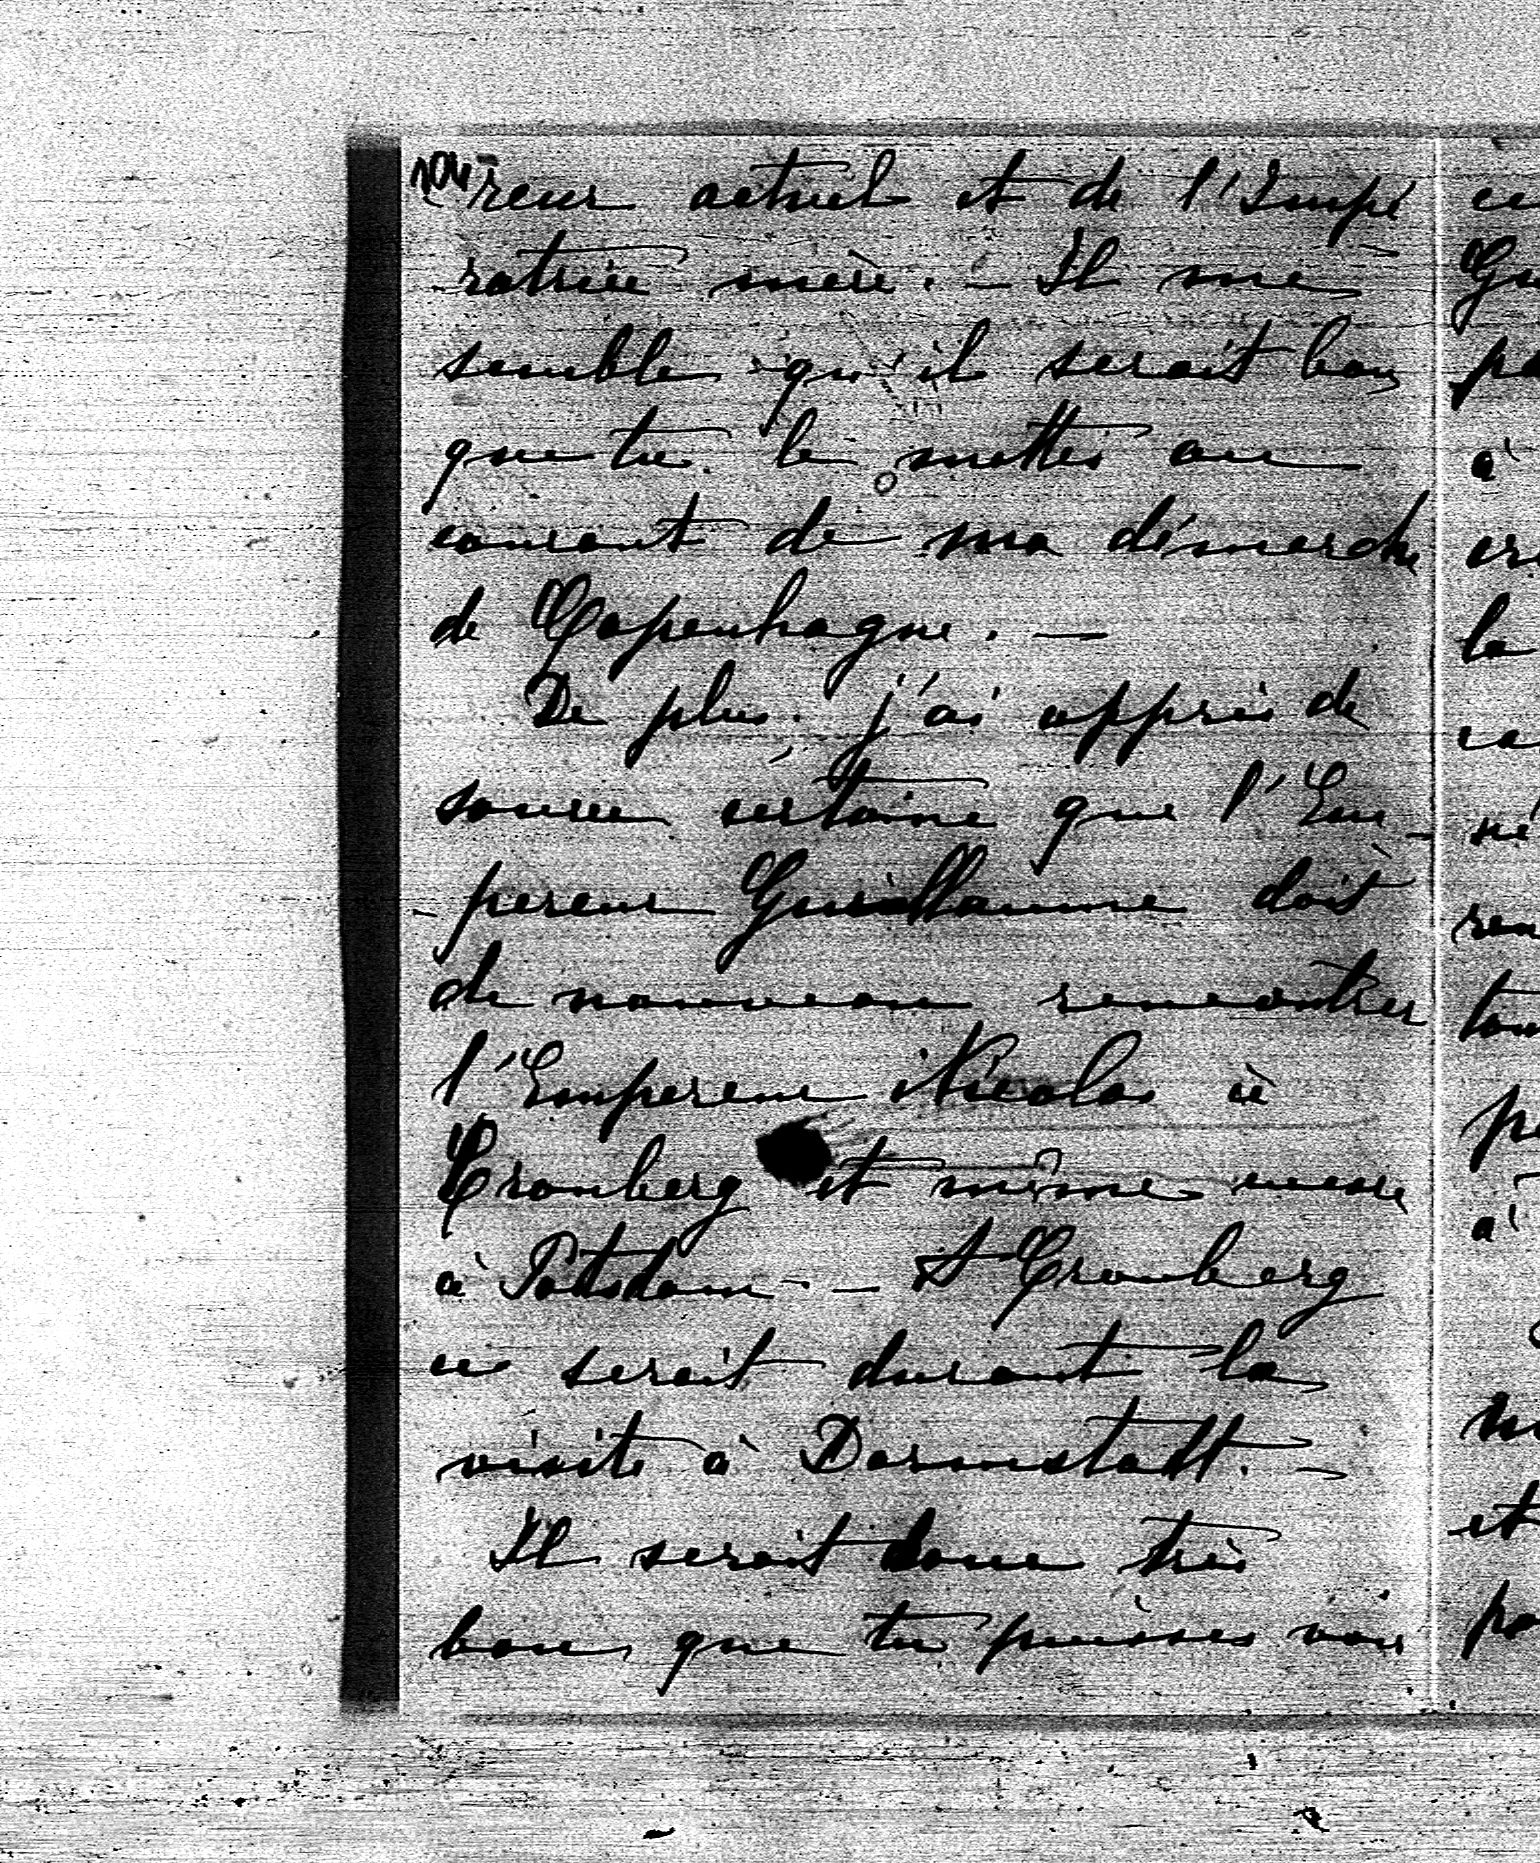 104
reur actuel et de l'Impé
ratrice mère. — Il me
semble qu'il serait bon
que tu le mettes au
courant de ma démarche
de Copenhague. —
De plus j'ai appris de
source certaine que l'Em-
-pereur Guillaume doit
de nouveau rencontrer
l'Empereur Nicolas à
Cronberg et même encore
à Potsdam. — A Cronberg
ce serait durant la
visite à Darmstadt. —
Il serait donc très
bon que tu puisses voir